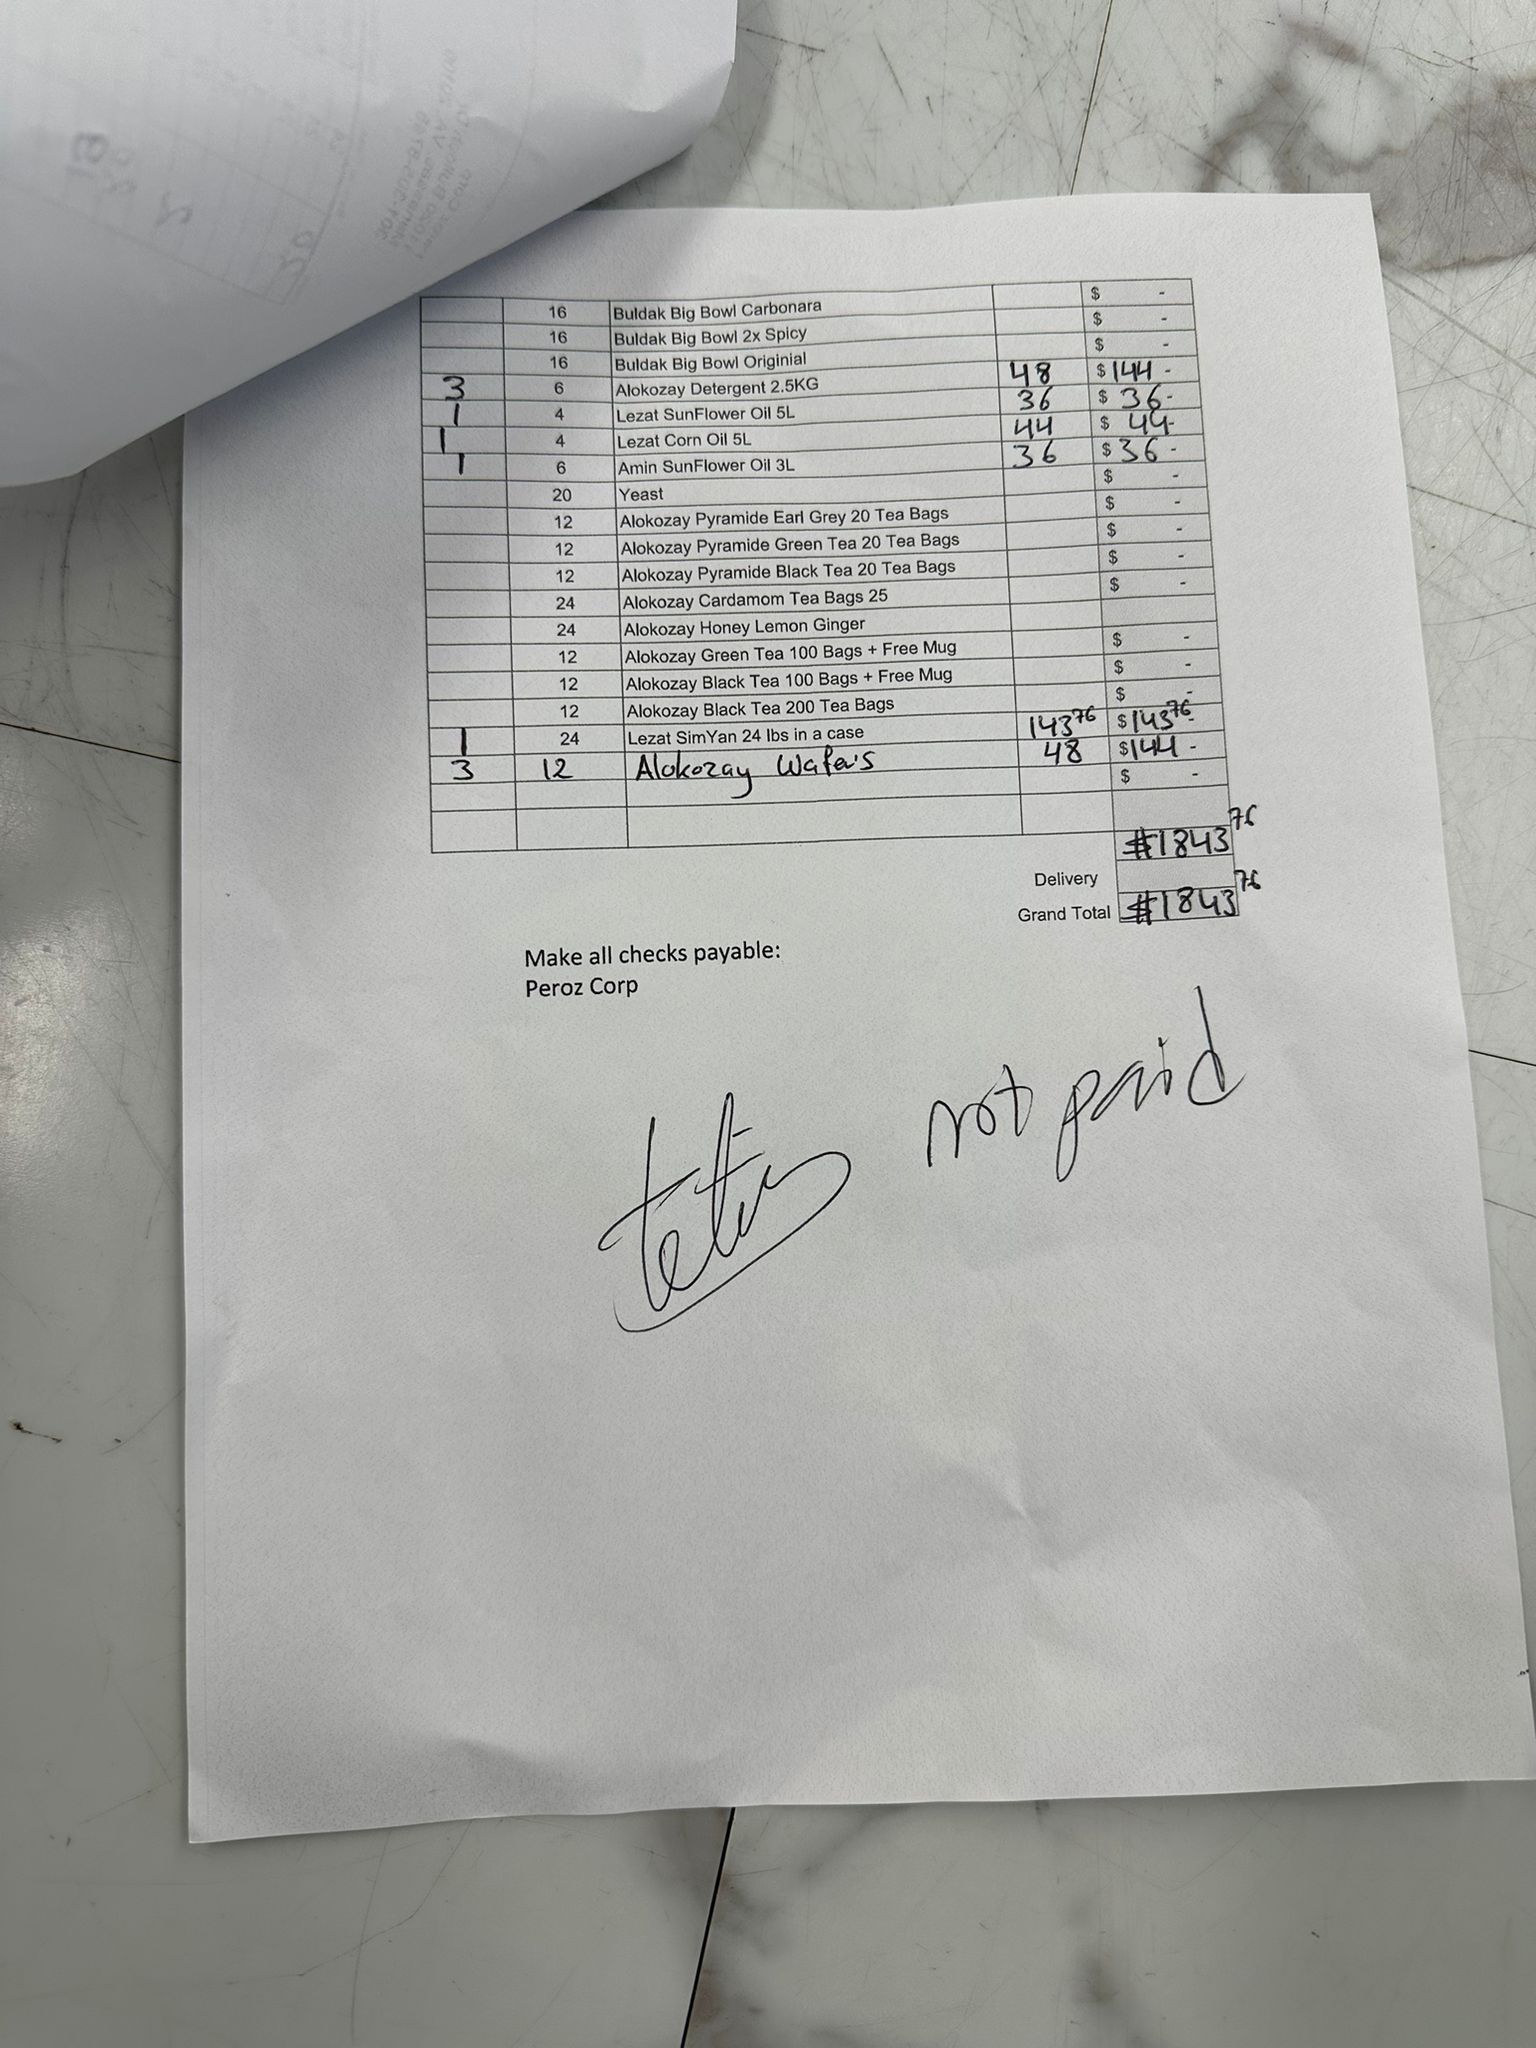 16 Buldak Big Bowl Carbonara $ -
16 Buldak Big Bowl 2x Spicy $ -
16 Buldak Big Bowl Originial $ -
3 6 Alokozay Detergent 2.5KG 48 $ 144 -
1 4 Lezat SunFlower Oil 5L 36 $ 36 -
1 4 Lezat Corn Oil 5L 44 $ 44 -
1 6 Amin SunFlower Oil 3L 36 $ 36 -
20 Yeast $ -
12 Alokozay Pyramide Earl Grey 20 Tea Bags $ -
12 Alokozay Pyramide Green Tea 20 Tea Bags $ -
12 Alokozay Pyramide Black Tea 20 Tea Bags $ -
24 Alokozay Cardamom Tea Bags 25 $ -
24 Alokozay Honey Lemon Ginger
12 Alokozay Green Tea 100 Bags + Free Mug $ -
12 Alokozay Black Tea 100 Bags + Free Mug $ -
12 Alokozay Black Tea 200 Tea Bags $ -
1 24 Lezat SimYan 24 lbs in a case 143 76 $ 143 76 -
3 12 Alokozay Wafers 48 $ 144 -
$ -
$1843 76
Delivery
Grand Total $1843 76
Make all checks payable:
Peroz Corp
not paid